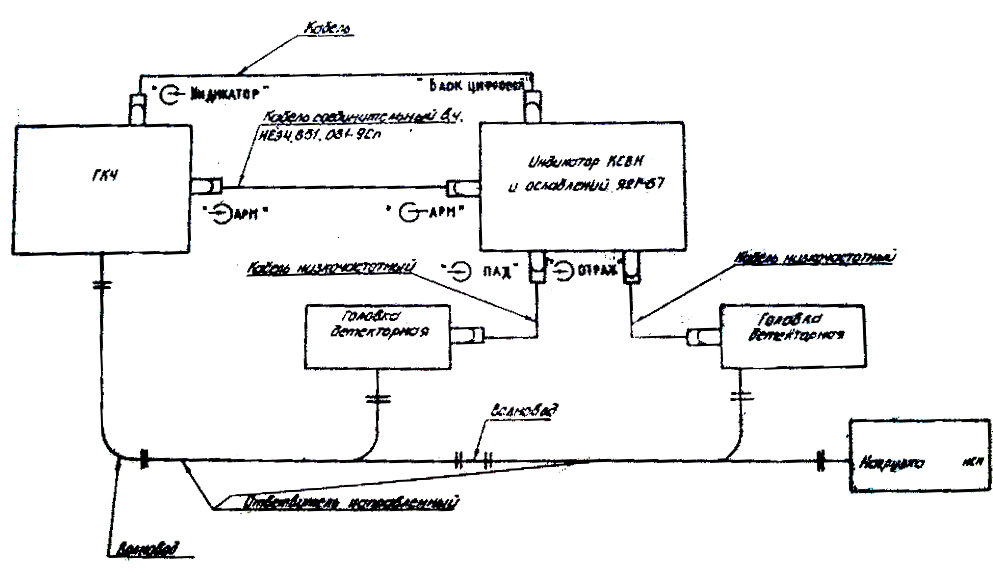 Кабель
"ИНДИКАТОР"
"БЛОК ЦИФРОВОЙ"
Кабель соединительный В.Ч.
ГКЧ
Индикатор КСВН
и ослаблений Я2Р-67
"АРМ"
"АРМ"
Кабель низкочастотный
"ПАД"
"ОТРАЖ"
Кабель низкочастотный
Головка
детекторная
Головка
детекторная
Волновод
Нагрузка
Ответвитель направленный
Волновод